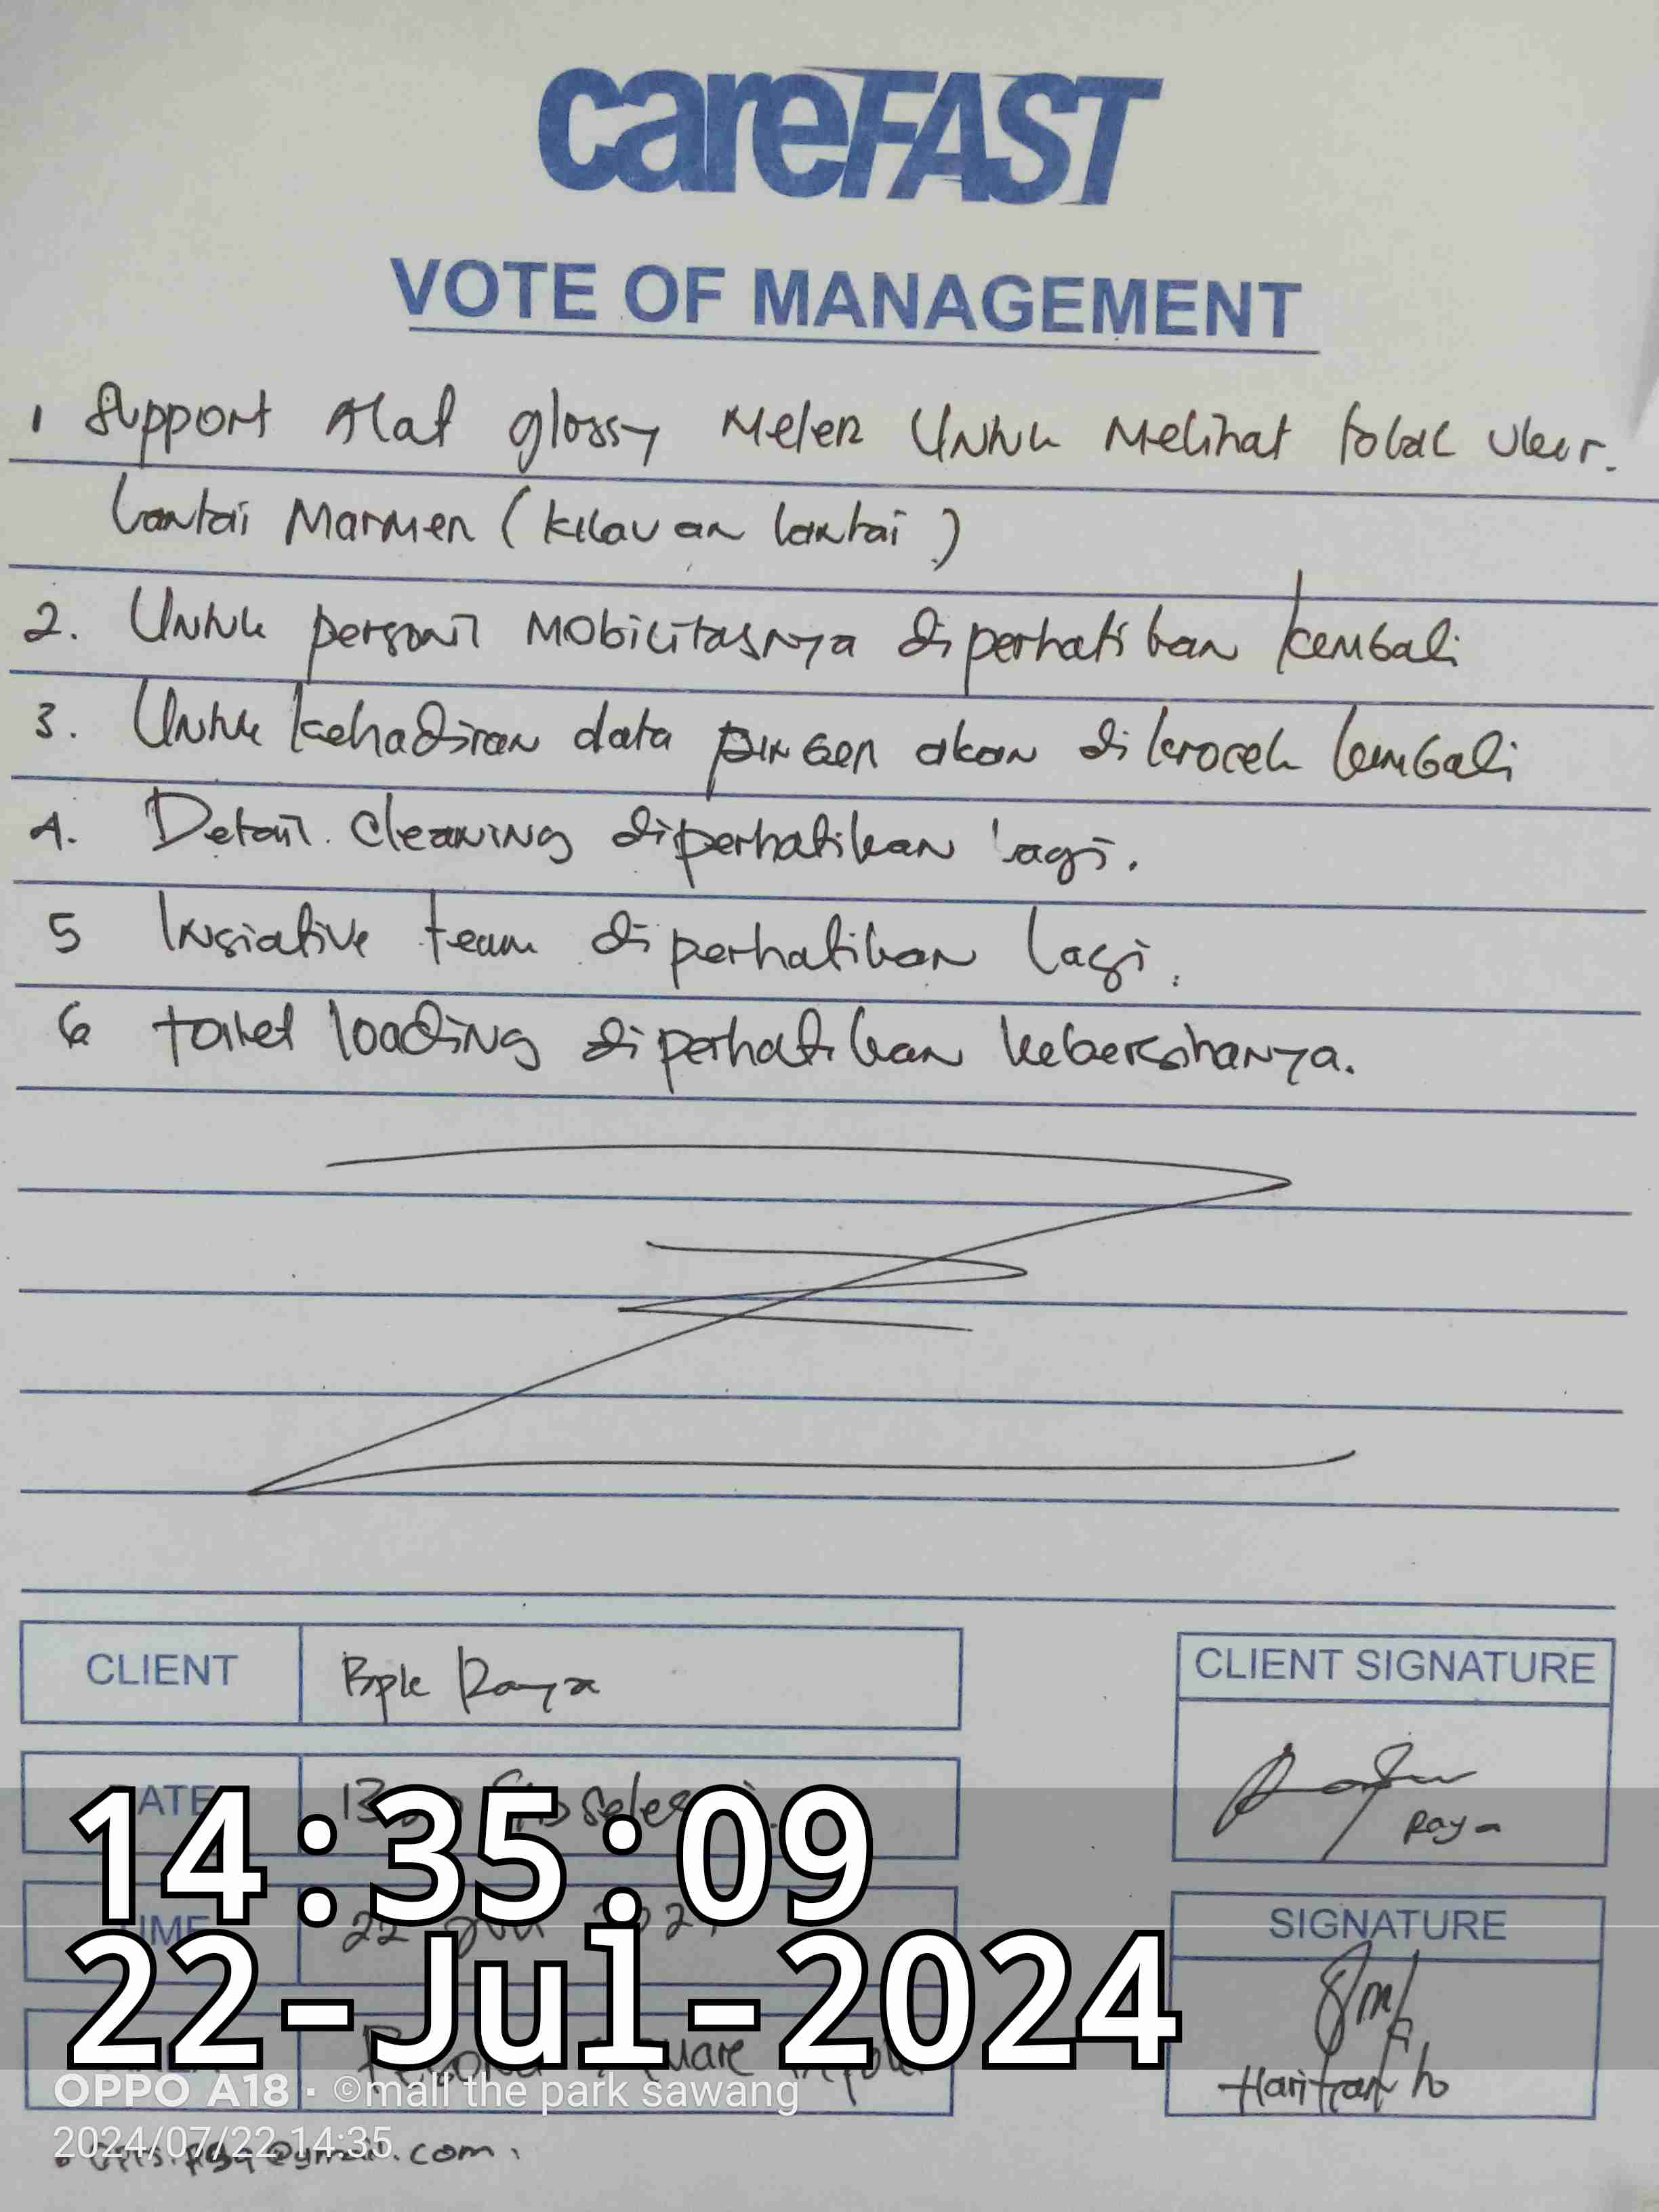 careFAST
VOTE OF MANAGEMENT
1 Support Alat glossy Meter Untuk Melihat tolak Ukur.
lantai Marmer (kilauan lantai)
2. Untuk personil Mobilitasnya diperhatikan kembali
3. Untuk kehadiran data finger akan dikrocek kembali
4. Detail. Cleaning diperhatikan lagi.
5 Insiative team diperhatikan lagi.
6 toilet loading diperhatikan kebersihanya.
CLIENT Bpk Raya
CLIENT SIGNATURE
Raya
DATE
14:35:09
TIME 22
SIGNATURE
22-Jul-2024
Haritanto
OPPO A18 · ©mall the park sawang
2024/07/22 14:35
@gmail.com.